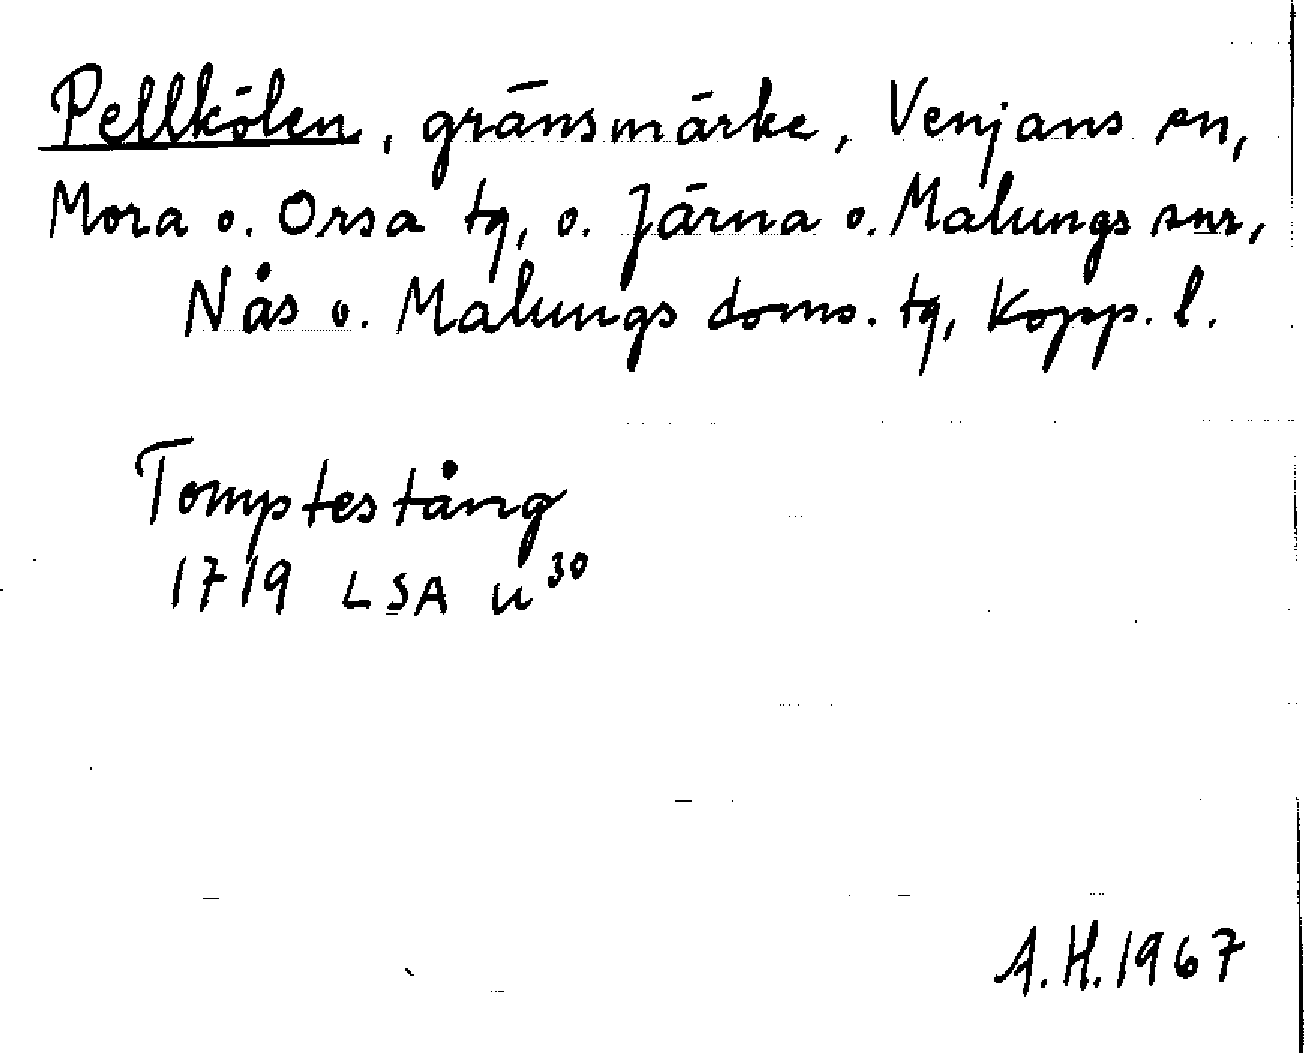 Pellkölen, gränsmärke, Venjans sn,
Mora o. Orsa tg, o. Järna o. Malungs snr,
Nås o. Malungs doms. tg, Kopp. l.
Tomptestång
1719 LSA u 30
A.H. 1967